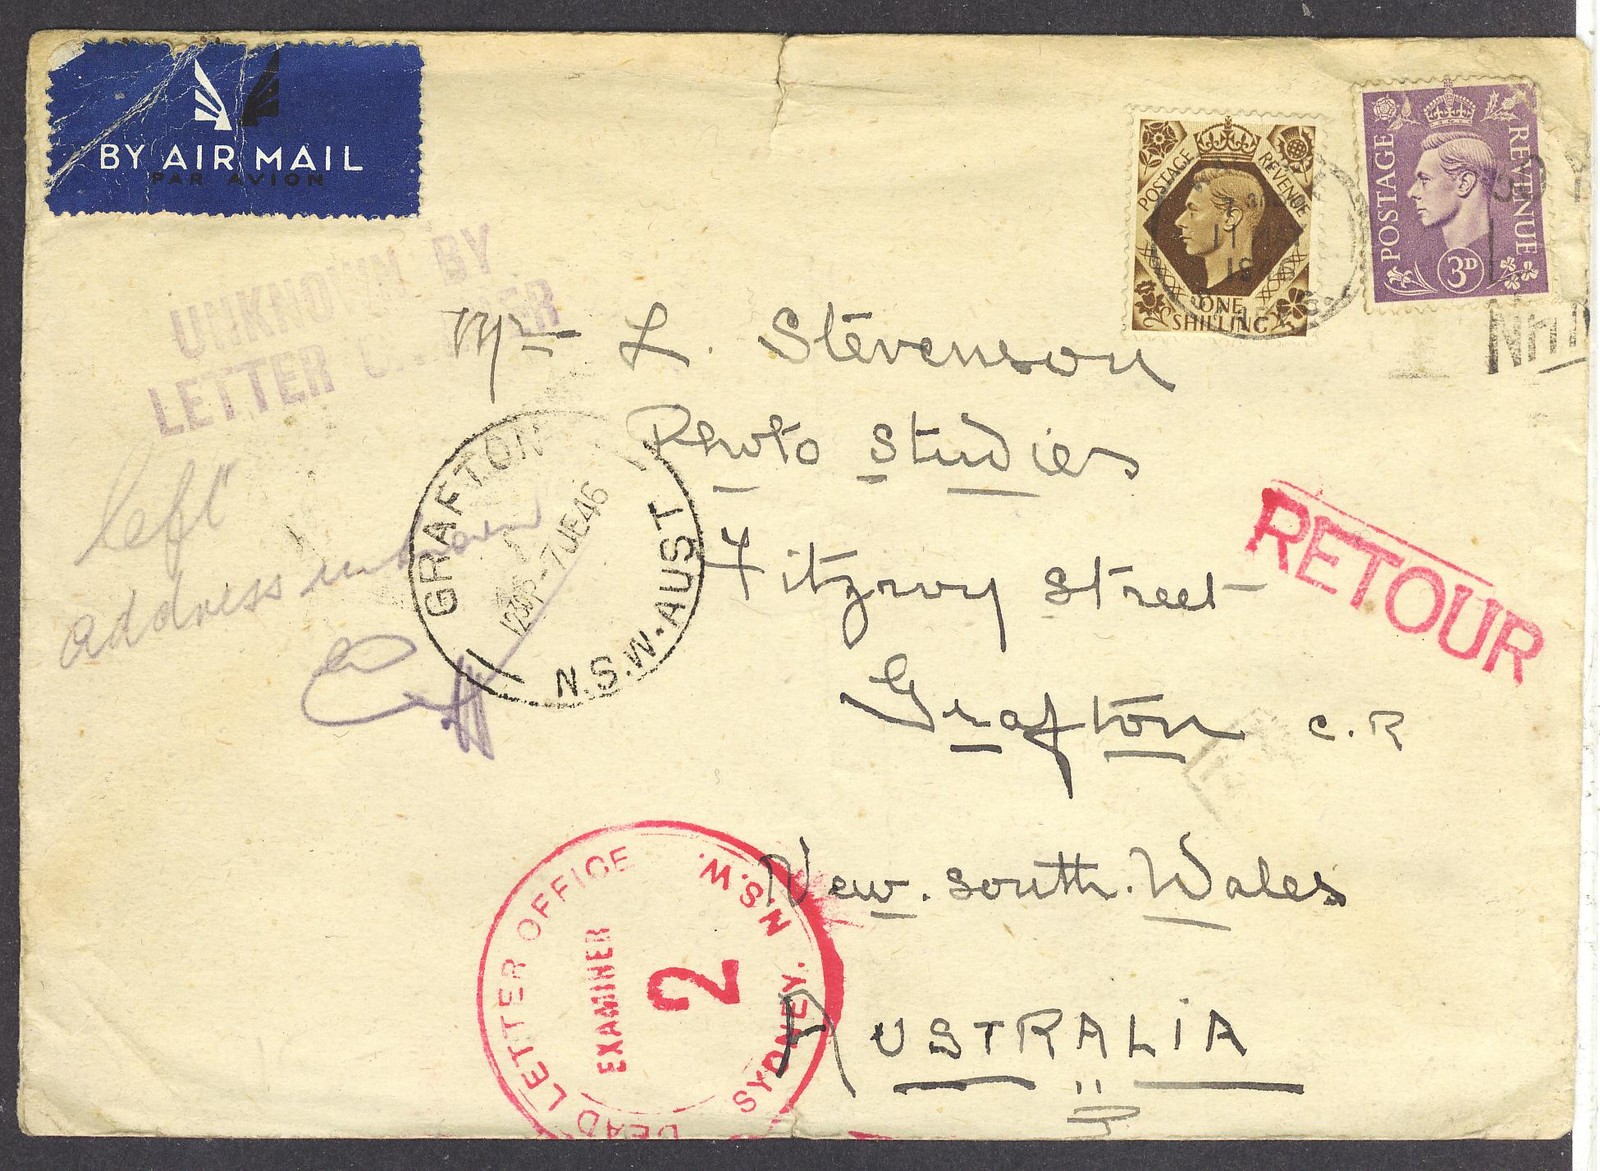 BY AIR MAIL
PAR AVION
POSTAGE REVENUE
ONE
SHILLING
POSTAGE REVENUE
3D
UNKNOWN BY
LETTER
Mr L. Stevenson
Photo Studies
Fitzroy Street
Grafton C.R
New. South. Wales
AUSTRALIA
left
address unknown
GRAFTON
7 JE 46
N.S.W. AUST
RETOUR
DEAD LETTER OFFICE
EXAMINER
2
SYDNEY. N.S.W.